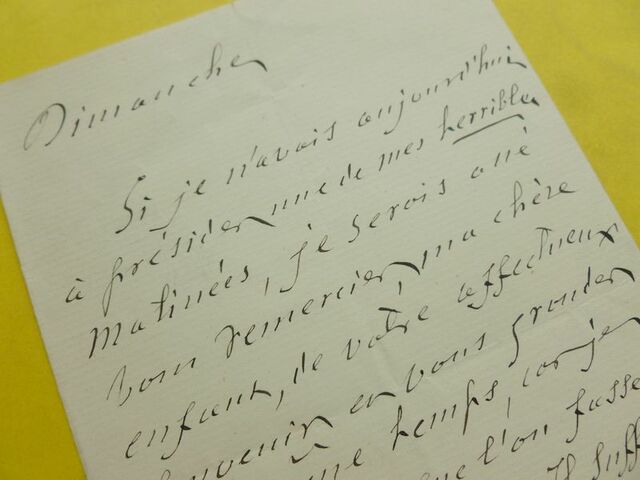 Dimanche
Si je n'avais aujourd'hui
à présider une de mes horribles
Matinées, je serais allé
vous remercier, ma chère
enfant, de votre affectueux
souvenir en vous gronder
même temps, car je
que l'on fasse
Il suff